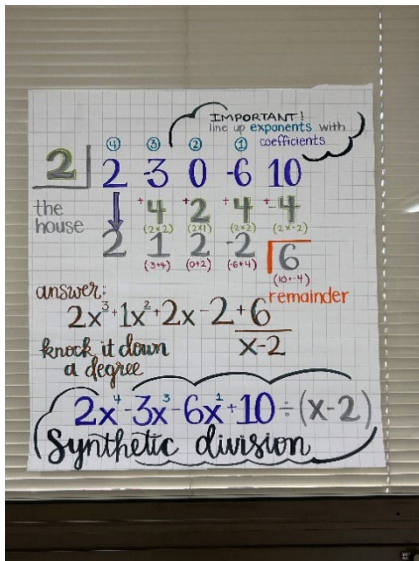 IMPORTANT!
line up exponents with
coefficients
④ ③ ② ①
2 2 -3 0 -6 10
the
house
+4 +2 +4 +-4
(2×2) (2×1) (2×2) (2×-2)
2 1 2 -2 6
(-3+4) (0+2) (-6+4) (10+-4)
remainder
answer:
2x³+1x²+2x-2+6
x-2
knock it down
a degree
2x⁴-3x³-6x¹+10÷(x-2)
Synthetic division